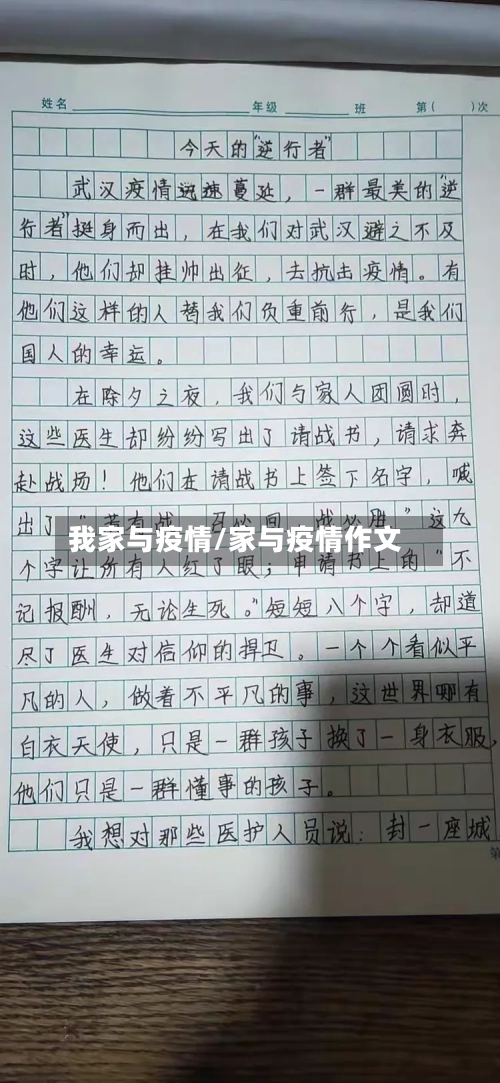 姓名 年级 班 第( )次
今天的“逆行者”
武汉疫情迅速蔓延，一群最美的“逆
行者”挺身而出，在我们对武汉避之不及
时，他们却挂帅出征，去抗击疫情。有
他们这样的人替我们负重前行，是我们
国人的幸运。
在除夕之夜，我们与家人团圆时，
这些医生却纷纷写出了请战书，请求奔
赴战场！他们在请战书上签下名字，喊
出了“若有战，召必回，战必胜”这九
我家与疫情/家与疫情作文
个字让所有人红了眼；申请书上的“不
记报酬，无论生死。”短短八个字，却道
尽了医生对信仰的捍卫。一个个看似平
凡的人，做着不平凡的事，这世界哪有
白衣天使，只是一群孩子换了一身衣服，
他们只是一群懂事的孩子。
我想对那些医护人员说：封一座城
第